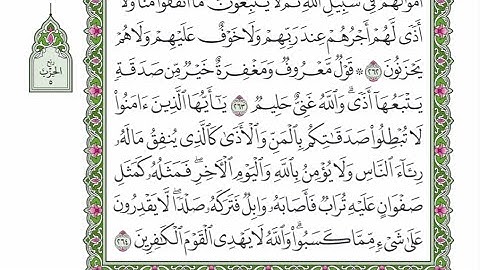 أَمْوَٰلَهُمْ فِى سَبِيلِ ٱللَّهِ ثُمَّ لَا يُتْبِعُونَ مَآ أَنفَقُوا۟ مَنًّا وَلَآ
أَذًى لَّهُمْ أَجْرُهُمْ عِندَ رَبِّهِمْ وَلَا خَوْفٌ عَلَيْهِمْ وَلَا هُمْ
يَحْزَنُونَ ٢٦٢ ۞ قَوْلٌ مَّعْرُوفٌ وَمَغْفِرَةٌ خَيْرٌ مِّن صَدَقَةٍ
يَتْبَعُهَآ أَذًى ۗ وَٱللَّهُ غَنِىٌّ حَلِيمٌ ٢٦٣ يَٰٓأَيُّهَا ٱلَّذِينَ ءَامَنُوا۟
لَا تُبْطِلُوا۟ صَدَقَٰتِكُم بِٱلْمَنِّ وَٱلْأَذَىٰ كَٱلَّذِى يُنفِقُ مَالَهُۥ
رِئَآءَ ٱلنَّاسِ وَلَا يُؤْمِنُ بِٱللَّهِ وَٱلْيَوْمِ ٱلْءَاخِرِ ۖ فَمَثَلُهُۥ كَمَثَلِ
صَفْوَانٍ عَلَيْهِ تُرَابٌ فَأَصَابَهُۥ وَابِلٌ فَتَرَكَهُۥ صَلْدًا ۖ لَّا يَقْدِرُونَ
عَلَىٰ شَىْءٍ مِّمَّا كَسَبُوا۟ ۗ وَٱللَّهُ لَا يَهْدِى ٱلْقَوْمَ ٱلْكَٰفِرِينَ ٢٦٤
ربع
الحزب
٥